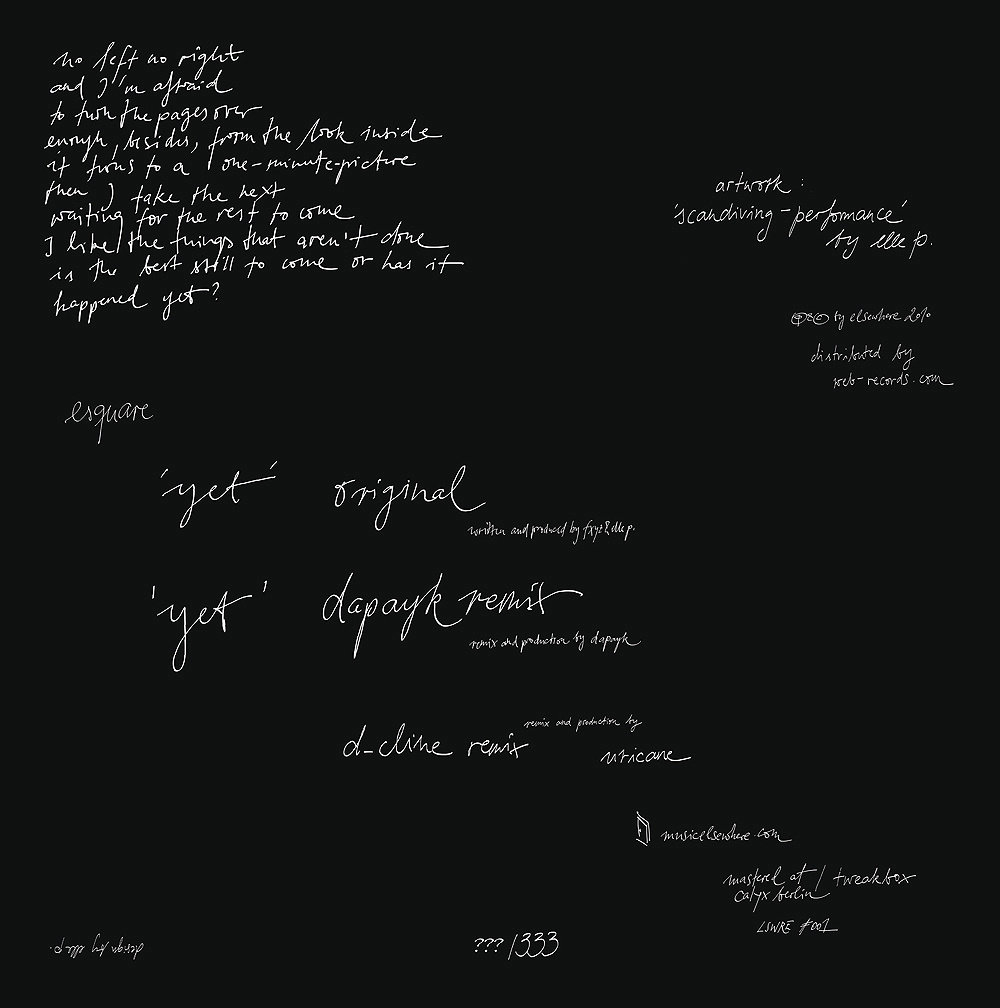 no left no right
and I'm afraid
to turn the pages over
enough, besides, from the look inside
it turns to a one-minute-picture
then I take the next
waiting for the rest to come
I like the things that aren't done
is the best still to come or has it
happened yet?
artwork :
'scandiving-performance'
by elle p.
by elsewhere 2010
distributed by
web-records.com
esquare
'yet' original
written and produced by fxyz & elle p.
'yet' dapayk remix
remix and production by dapayk
d_cline remix
remix and production by
nricane
musicelsewhere.com
mastered at / tweakbox
calyx berlin
LSWRE #001
design by elle p.
??? /333